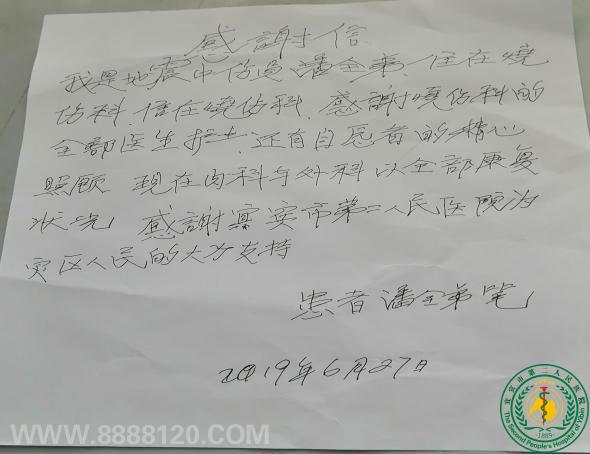 感謝信
我是地震中伤员潘全弟.住在燒
伤科.住在燒伤科.感謝燒伤科的
全部医生护士.还有自愿者的精心
照顾 现在内科与外科以全部康复
状况 感謝宜宾市第二人民医院为
灾区人民的大力支持
患者潘全弟笔
2019年6月27日
WWW.8888120.COM
宜宾市第二人民医院
The Second People's Hospital of Yibin
-1889-